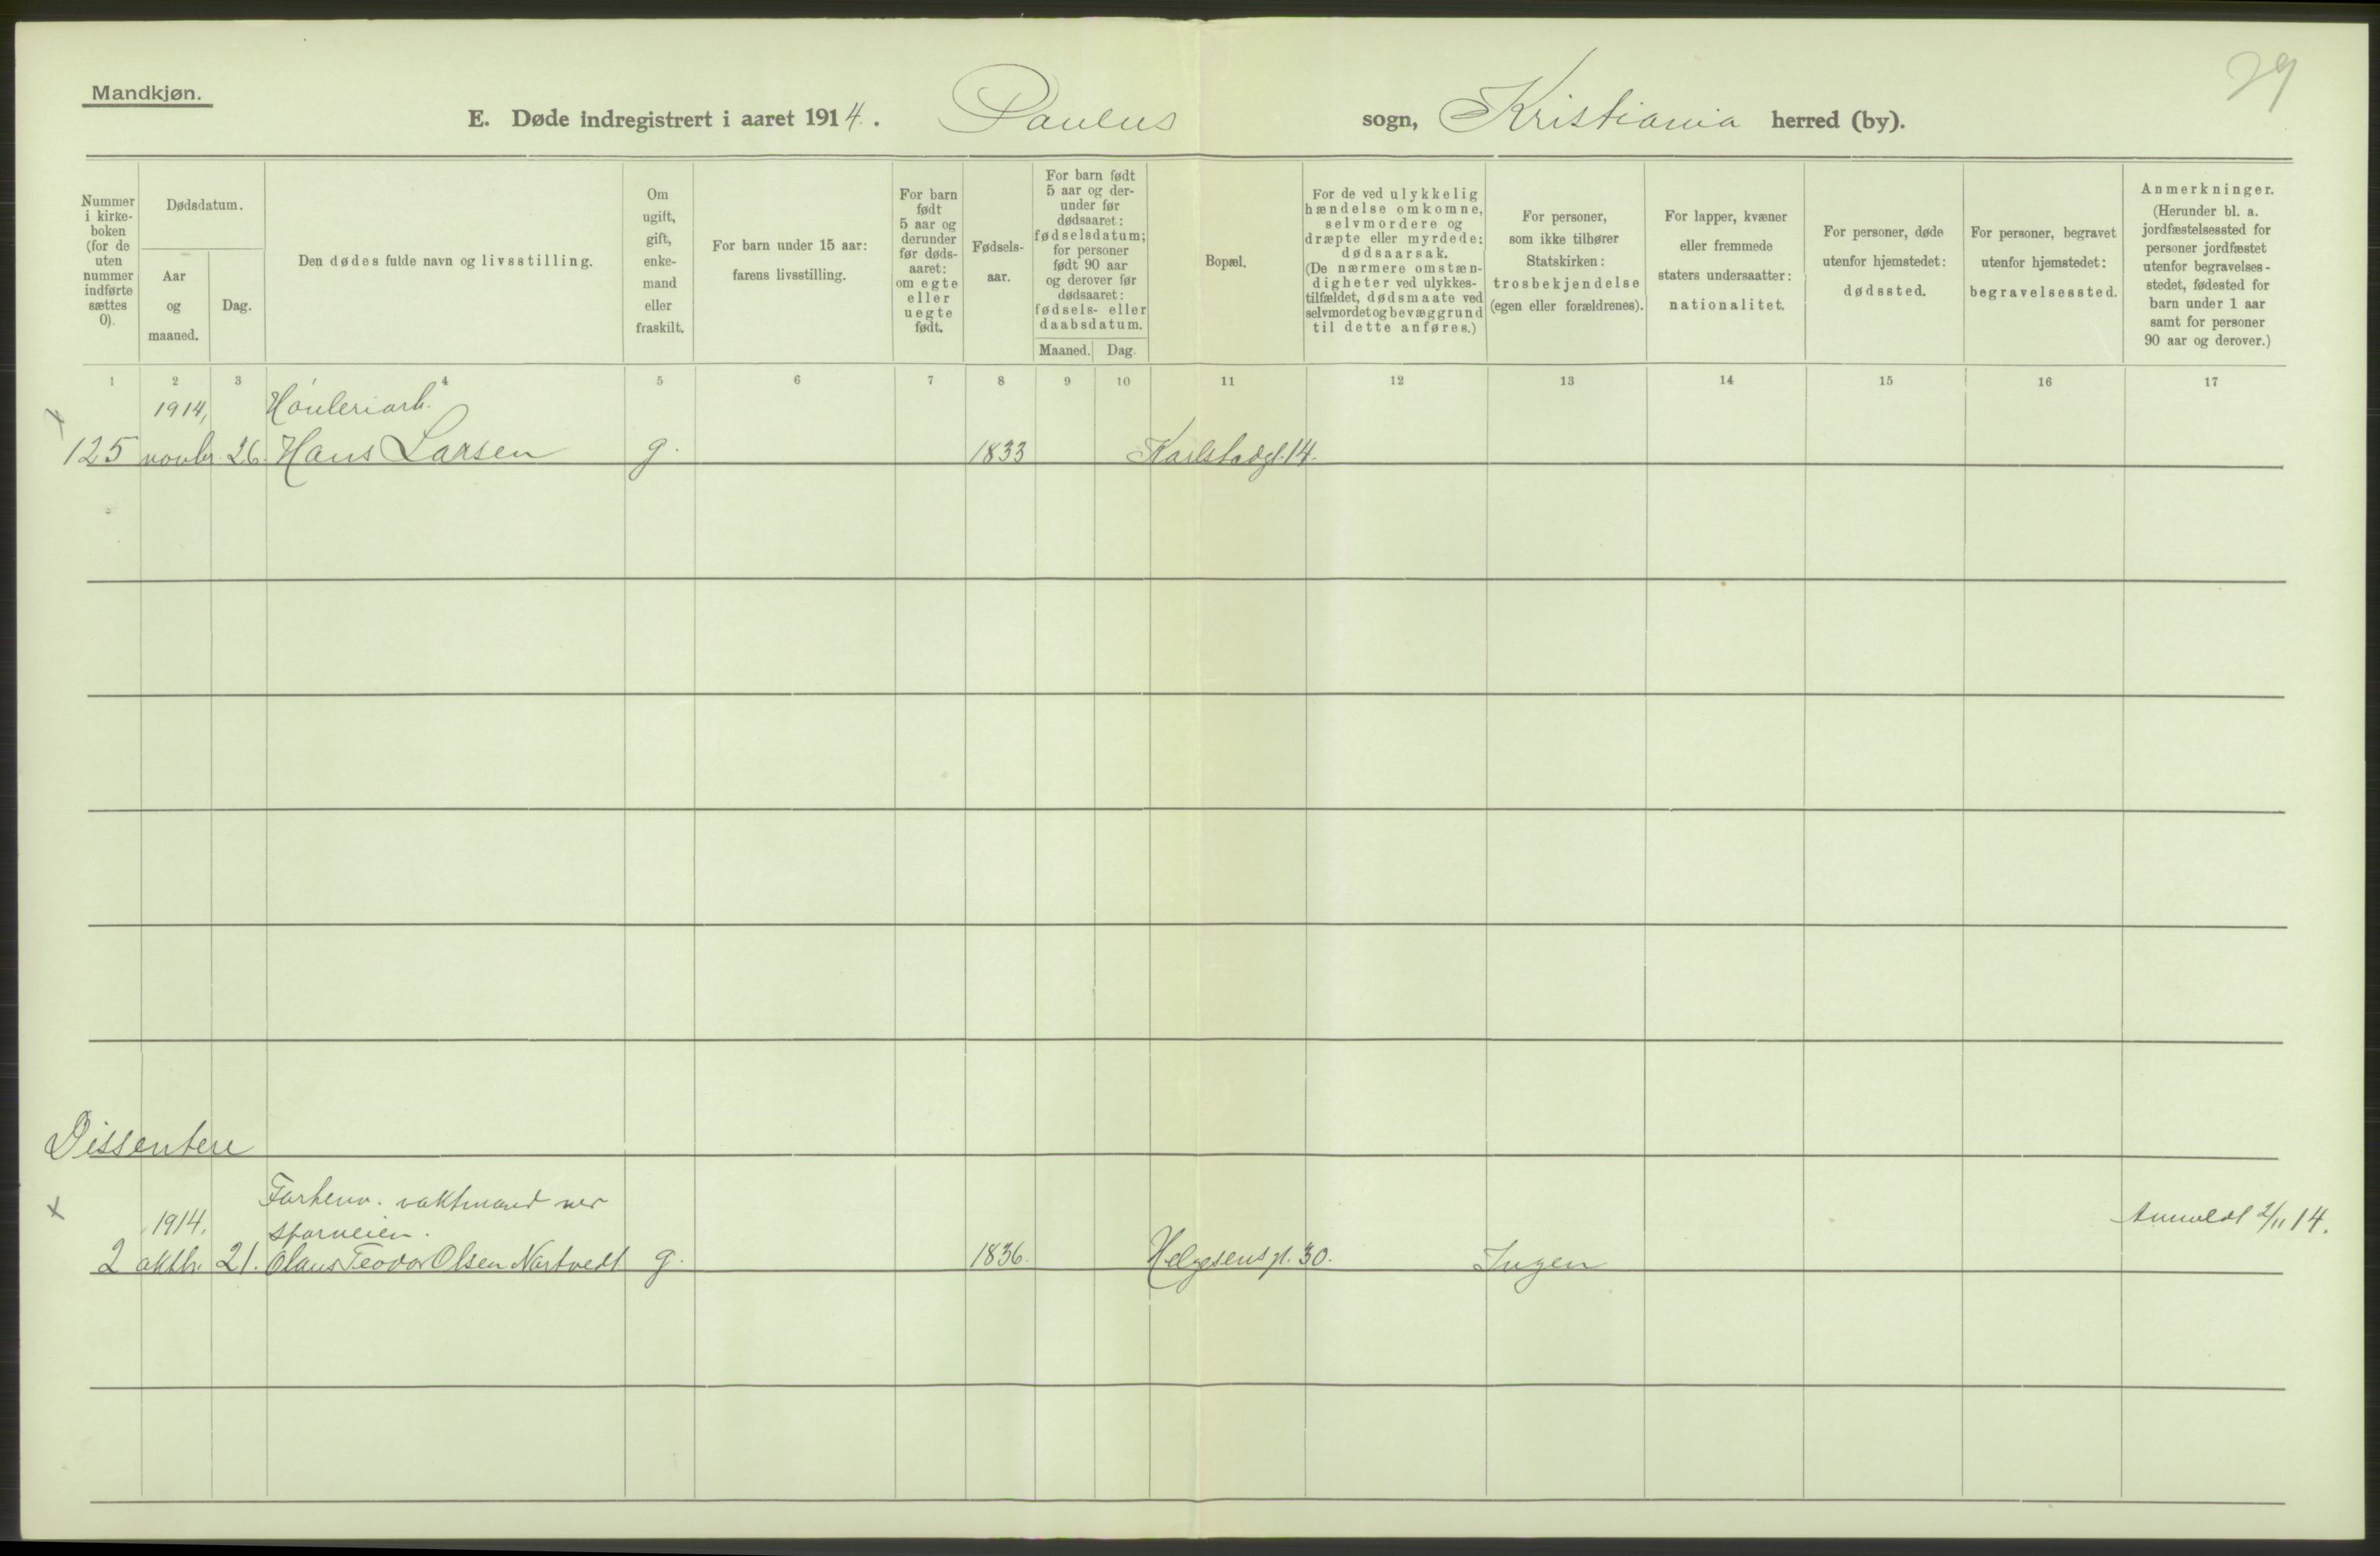 29
Mandkjøn.
E. Døde indregistrert i aaret 1914. Paulus sogn, Kristiania herred (by).
Nummer
i kirke-
boken
(for de
uten
nummer
indførte
sættes
0).
Dødsdatum.
Aar
og
maaned.
Dag.
Den dødes fulde navn og livsstilling.
Om
ugift,
gift,
enke-
mand
eller
fraskilt.
For barn under 15 aar:
farens livsstilling.
For barn
født
5 aar og
derunder
før døds-
aaret:
om egte
eller
uegte
født.
Fødsels-
aar.
For barn født
5 aar og der-
under før
dødsaaret:
fødselsdatum;
for personer
født 90 aar
og derover før
dødsaaret:
fødsels- eller
daabsdatum.
Maaned.
Dag.
Bopæl.
For de ved ulykkelig
hændelse omkomne,
selvmordere og
dræpte eller myrdede:
dødsaarsak.
(De nærmere omstæn-
digheter ved ulykkes-
tilfældet, dødsmaate ved
selvmordet og bevæggrund
til dette anføres.)
For personer,
som ikke tilhører
Statskirken:
trosbekjendelse
(egen eller forældrenes).
For lapper, kvæner
eller fremmede
staters undersaatter:
nationalitet.
For personer, døde
utenfor hjemstedet:
dødssted.
For personer, begravet
utenfor hjemstedet:
begravelsessted.
Anmerkninger.
(Herunder bl. a.
jordfæstelsessted for
personer jordfæstet
utenfor begravelses-
stedet, fødested for
barn under 1 aar
samt for personer
90 aar og derover.)
1 2 3 4 5 6 7 8 9 10 11 12 13 14 15 16 17
x 1914,
125 novbr. 26. Hans Larsen g. 1833 Karlstadgt. 14.
Dissentere
x Forhenv. vaktmand ver
1914. sporveien. Anmeldt 2/11 14.
2 oktbr. 21. Olaus Teodor Olsen Nartvedt g. 1836. Helgesens gt. 30. Ingen